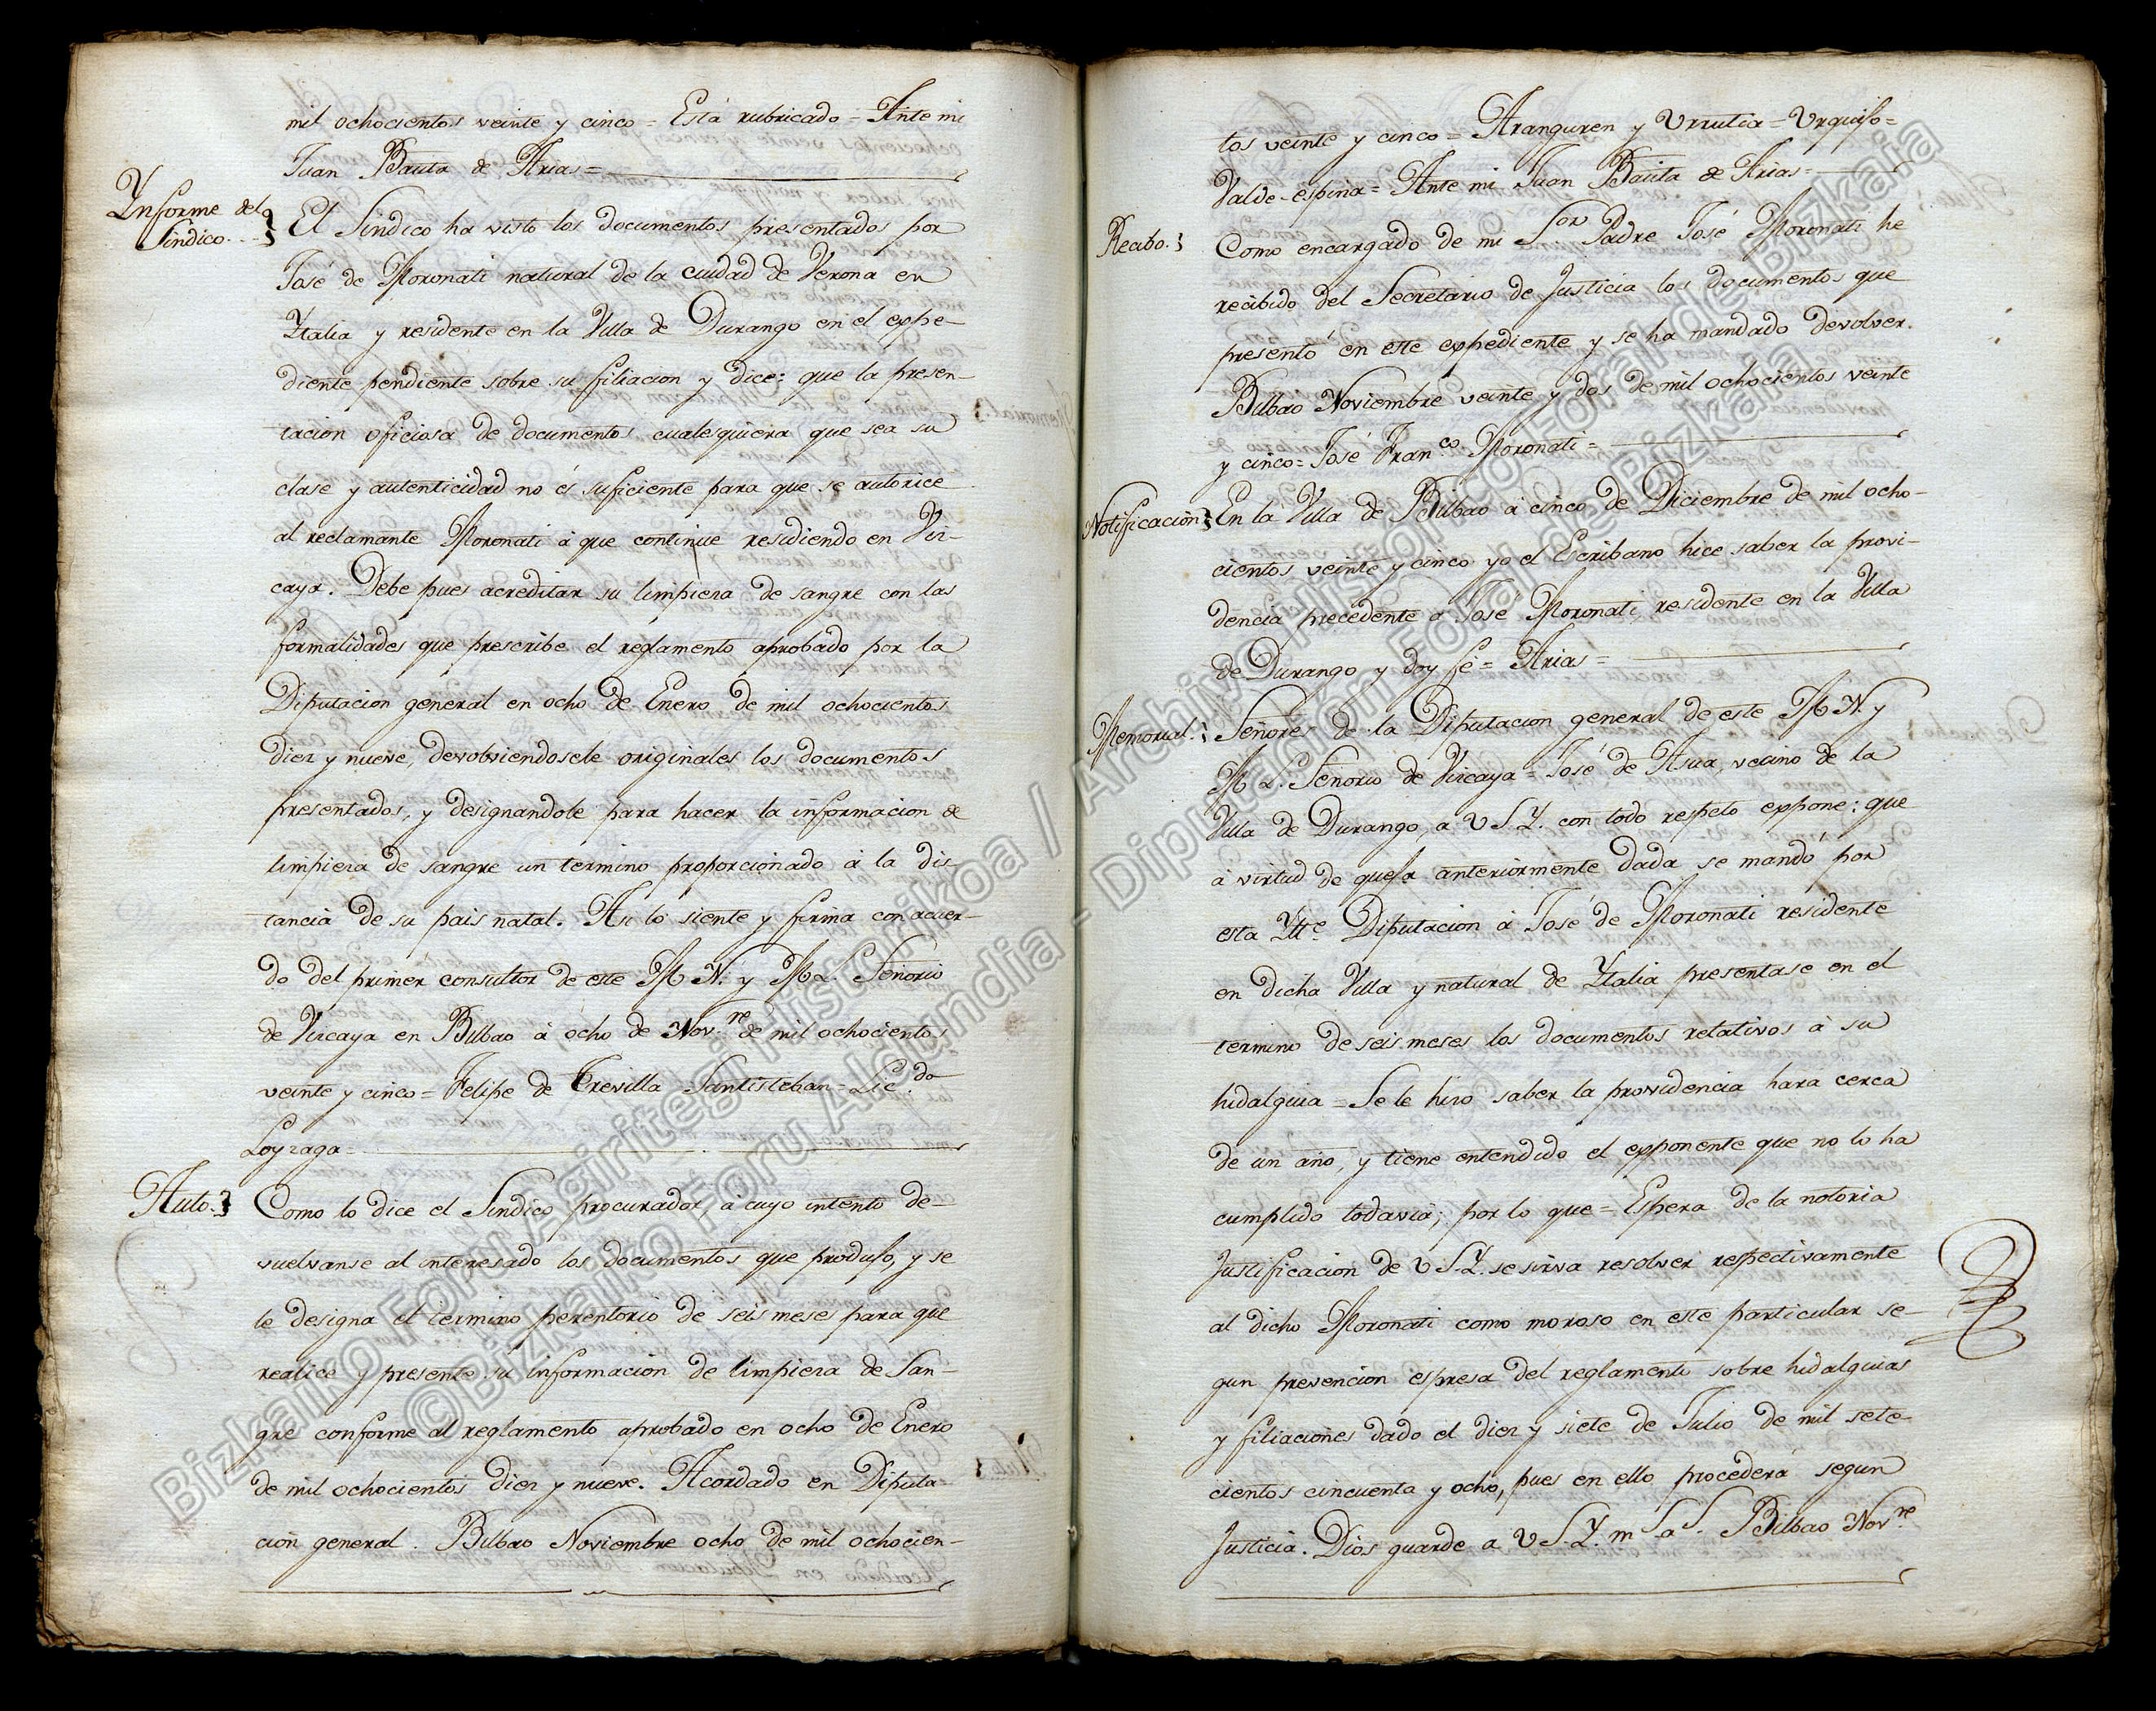 mil ochocientos veinte y cinco = Está rubricado = Ante mi
Juan Bauta de Arias =
Ynforme del
Sindico.
El Sindico ha visto los documentos presentados por
José de Moronati natural de la ciudad de Verona en
Ytalia y residente en la Villa de Durango en el expe-
diente pendiente sobre su filiacion y dice: que la presen-
tacion oficiosa de documentos cualesquiera que sea su
clase y autenticidad no és suficiente para que se autorice
al reclamante Moronati á que continue residiendo en Viz-
caya. Debe pues acreditar su limpieza de sangre con las
formalidades que prescribe el reglamento aprobado por la
Diputacion general en ocho de Enero de mil ochocientos
diez y nueve, devolviendosele originales los documentos
presentados, y designandole para hacer la informacion de
limpieza de sangre un termino proporcionado á la dis-
tancia de su pais natal. Asi lo siente y firma con acuer-
do del primer consultor de este M. N. y M. L. Señorio
de Vizcaya en Bilbao á ocho de Nov.re de mil ochocientos
veinte y cinco = Felipe de Trevilla Santisteban = Lic.do
Loyzaga =
Auto.
Como lo dice el Sindico procurador, á cuyo intento de-
vuelvanse al interesado los documentos que produjo, y se
le designa el termino perentorio de seis meses para que
realice y presente su informacion de limpieza de San-
gre conforme al reglamento aprobado en ocho de Enero
de mil ochocientos diez y nueve. Acordado en Diputa-
cion general. Bilbao Noviembre ocho de mil ochocien-
tos veinte y cinco = Aranguren y Urrutia = Urquijo =
Valde-espina = Ante mi Juan Bauta de Arias =
Recibo.
Como encargado de mi Sor Padre José Moronati he
recibido del Secretario de Justicia los documentos que
presentó en este expediente y se ha mandado devolver.
Bilbao Noviembre veinte y dos de mil ochocientos veinte
y cinco = José Fran.co Moronati =
Notificacion
En la Villa de Bilbao á cinco de Diciembre de mil ocho-
cientos veinte y cinco yo el Escribano hice saber la provi-
dencia precedente á José Moronati residente en la Villa
de Durango y doy fé = Arias =
Memorial.
Señores de la Diputacion general de este M. N. y
M. L. Señorio de Vizcaya = José de Asua, vecino de la
Villa de Durango, a V. S. Y. con todo respeto expone: que
á virtud de queja anteriormente dada se mandó por
esta Ylte. Diputacion á José de Moronati residente
en dicha Villa y natural de Ytalia presentase en el
termino de seis meses los documentos relativos á su
hidalguia = Se le hizo saber la providencia hará cerca
de un año, y tiene entendido el exponente que no lo ha
cumplido todavia; por lo que = Espera de la notoria
Justificacion de V. S. Y. se sirva resolver respectivamente
al dicho Moronati como moroso en este particular se-
gun prevencion espresa del reglamento sobre hidalguias
y filiaciones dado el diez y siete de Julio de mil sete-
cientos cincuenta y ocho, pues en ello procederá segun
Justicia. Dios guarde a V. S. Y. m.s a.s. Bilbao Nov.re
Bizkaiko Foru Agiritegi Historikoa / Archivo Histórico Foral de Bizkaia
©Bizkaiko Foru Aldundia - Diputación Foral de Bizkaia